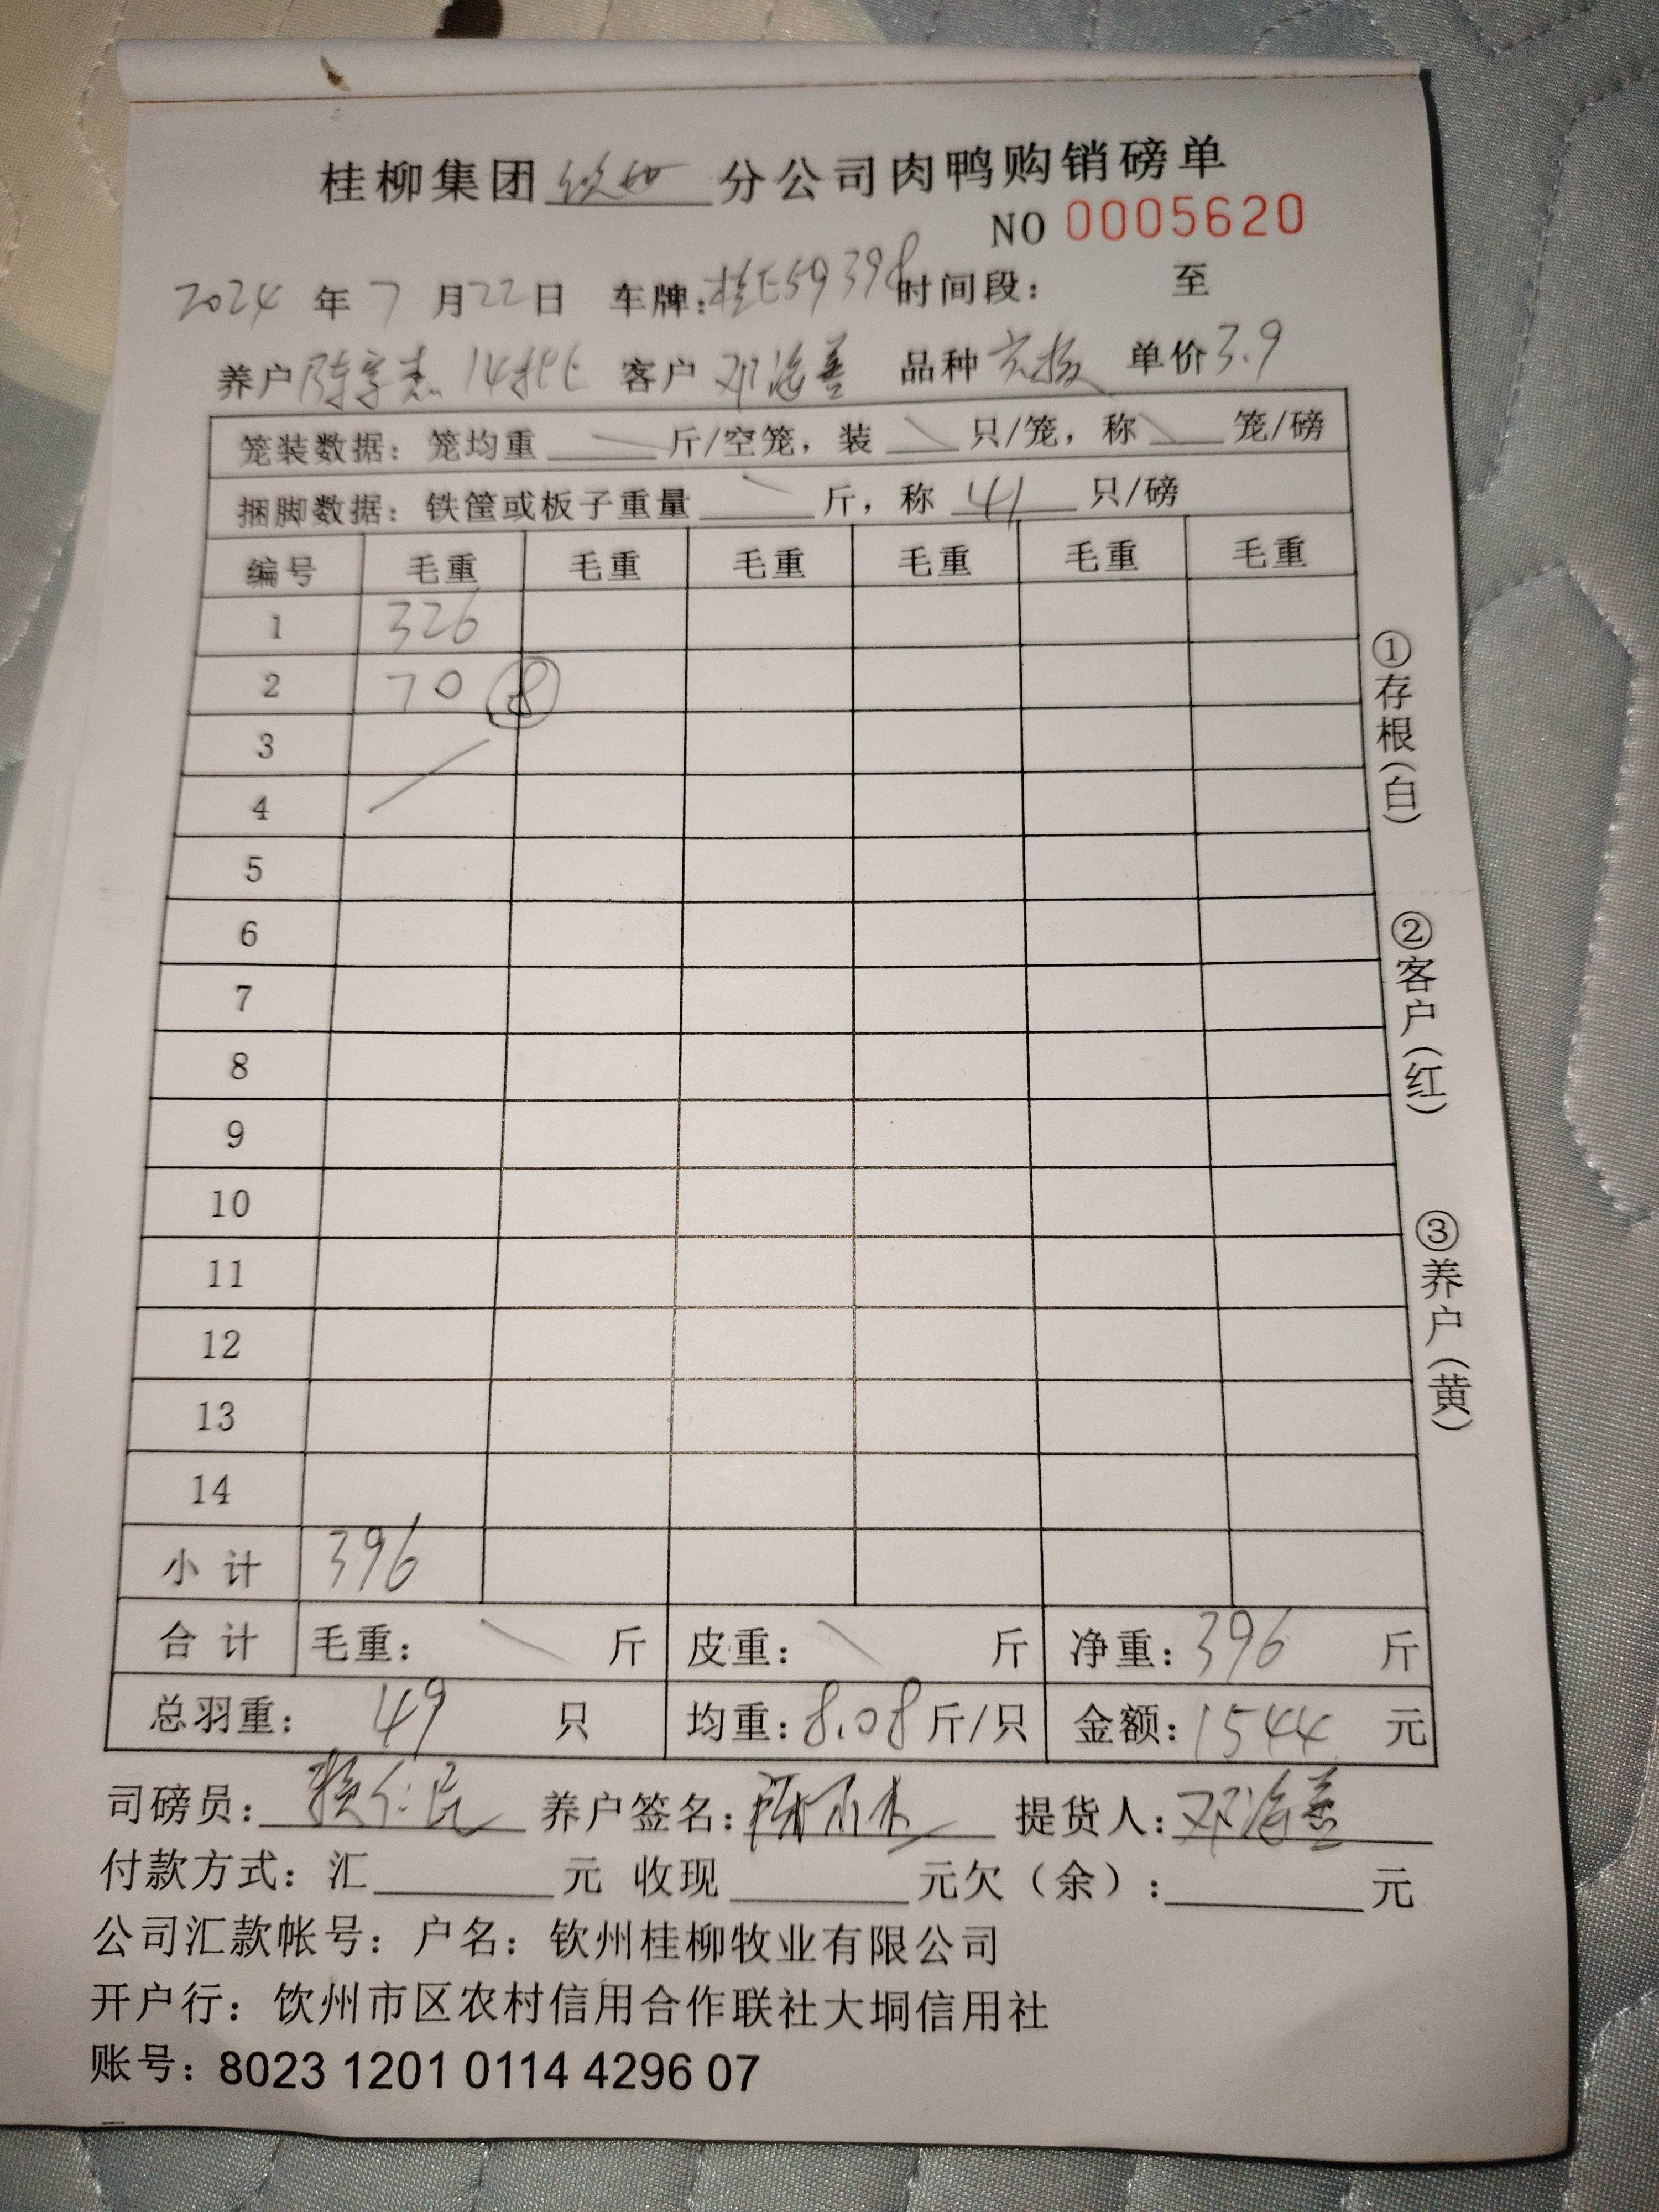 桂柳集团钦州分公司肉鸭购销磅单
NO 0005620
2024年7月22日 车牌:桂E59398时间段: 至
养户陈 14批 客户邓海善 品种 单价3.9
笼装数据: 笼均重 \ 斤/空笼, 装 \ 只/笼, 称 \ 笼/磅
捆脚数据: 铁筐或板子重量 \ 斤, 称 41 只/磅
编号 毛重 毛重 毛重 毛重 毛重 毛重
1 326
2 70 ⑧
3
4
5
6
7
8
9
10
11
12
13
14
小计 396
合计 毛重: \ 斤 皮重: \ 斤 净重: 396 斤
总羽重: 49 只 均重: 8.08斤/只 金额: 1544 元
司磅员: 仁 养户签名: 提货人: 邓海善
付款方式: 汇 元 收现 元欠(余): 元
公司汇款帐号: 户名: 钦州桂柳牧业有限公司
开户行: 饮州市区农村信用合作联社大垌信用社
账号: 8023 1201 0114 4296 07
①存根(白)
②客户(红)
③养户(黄)